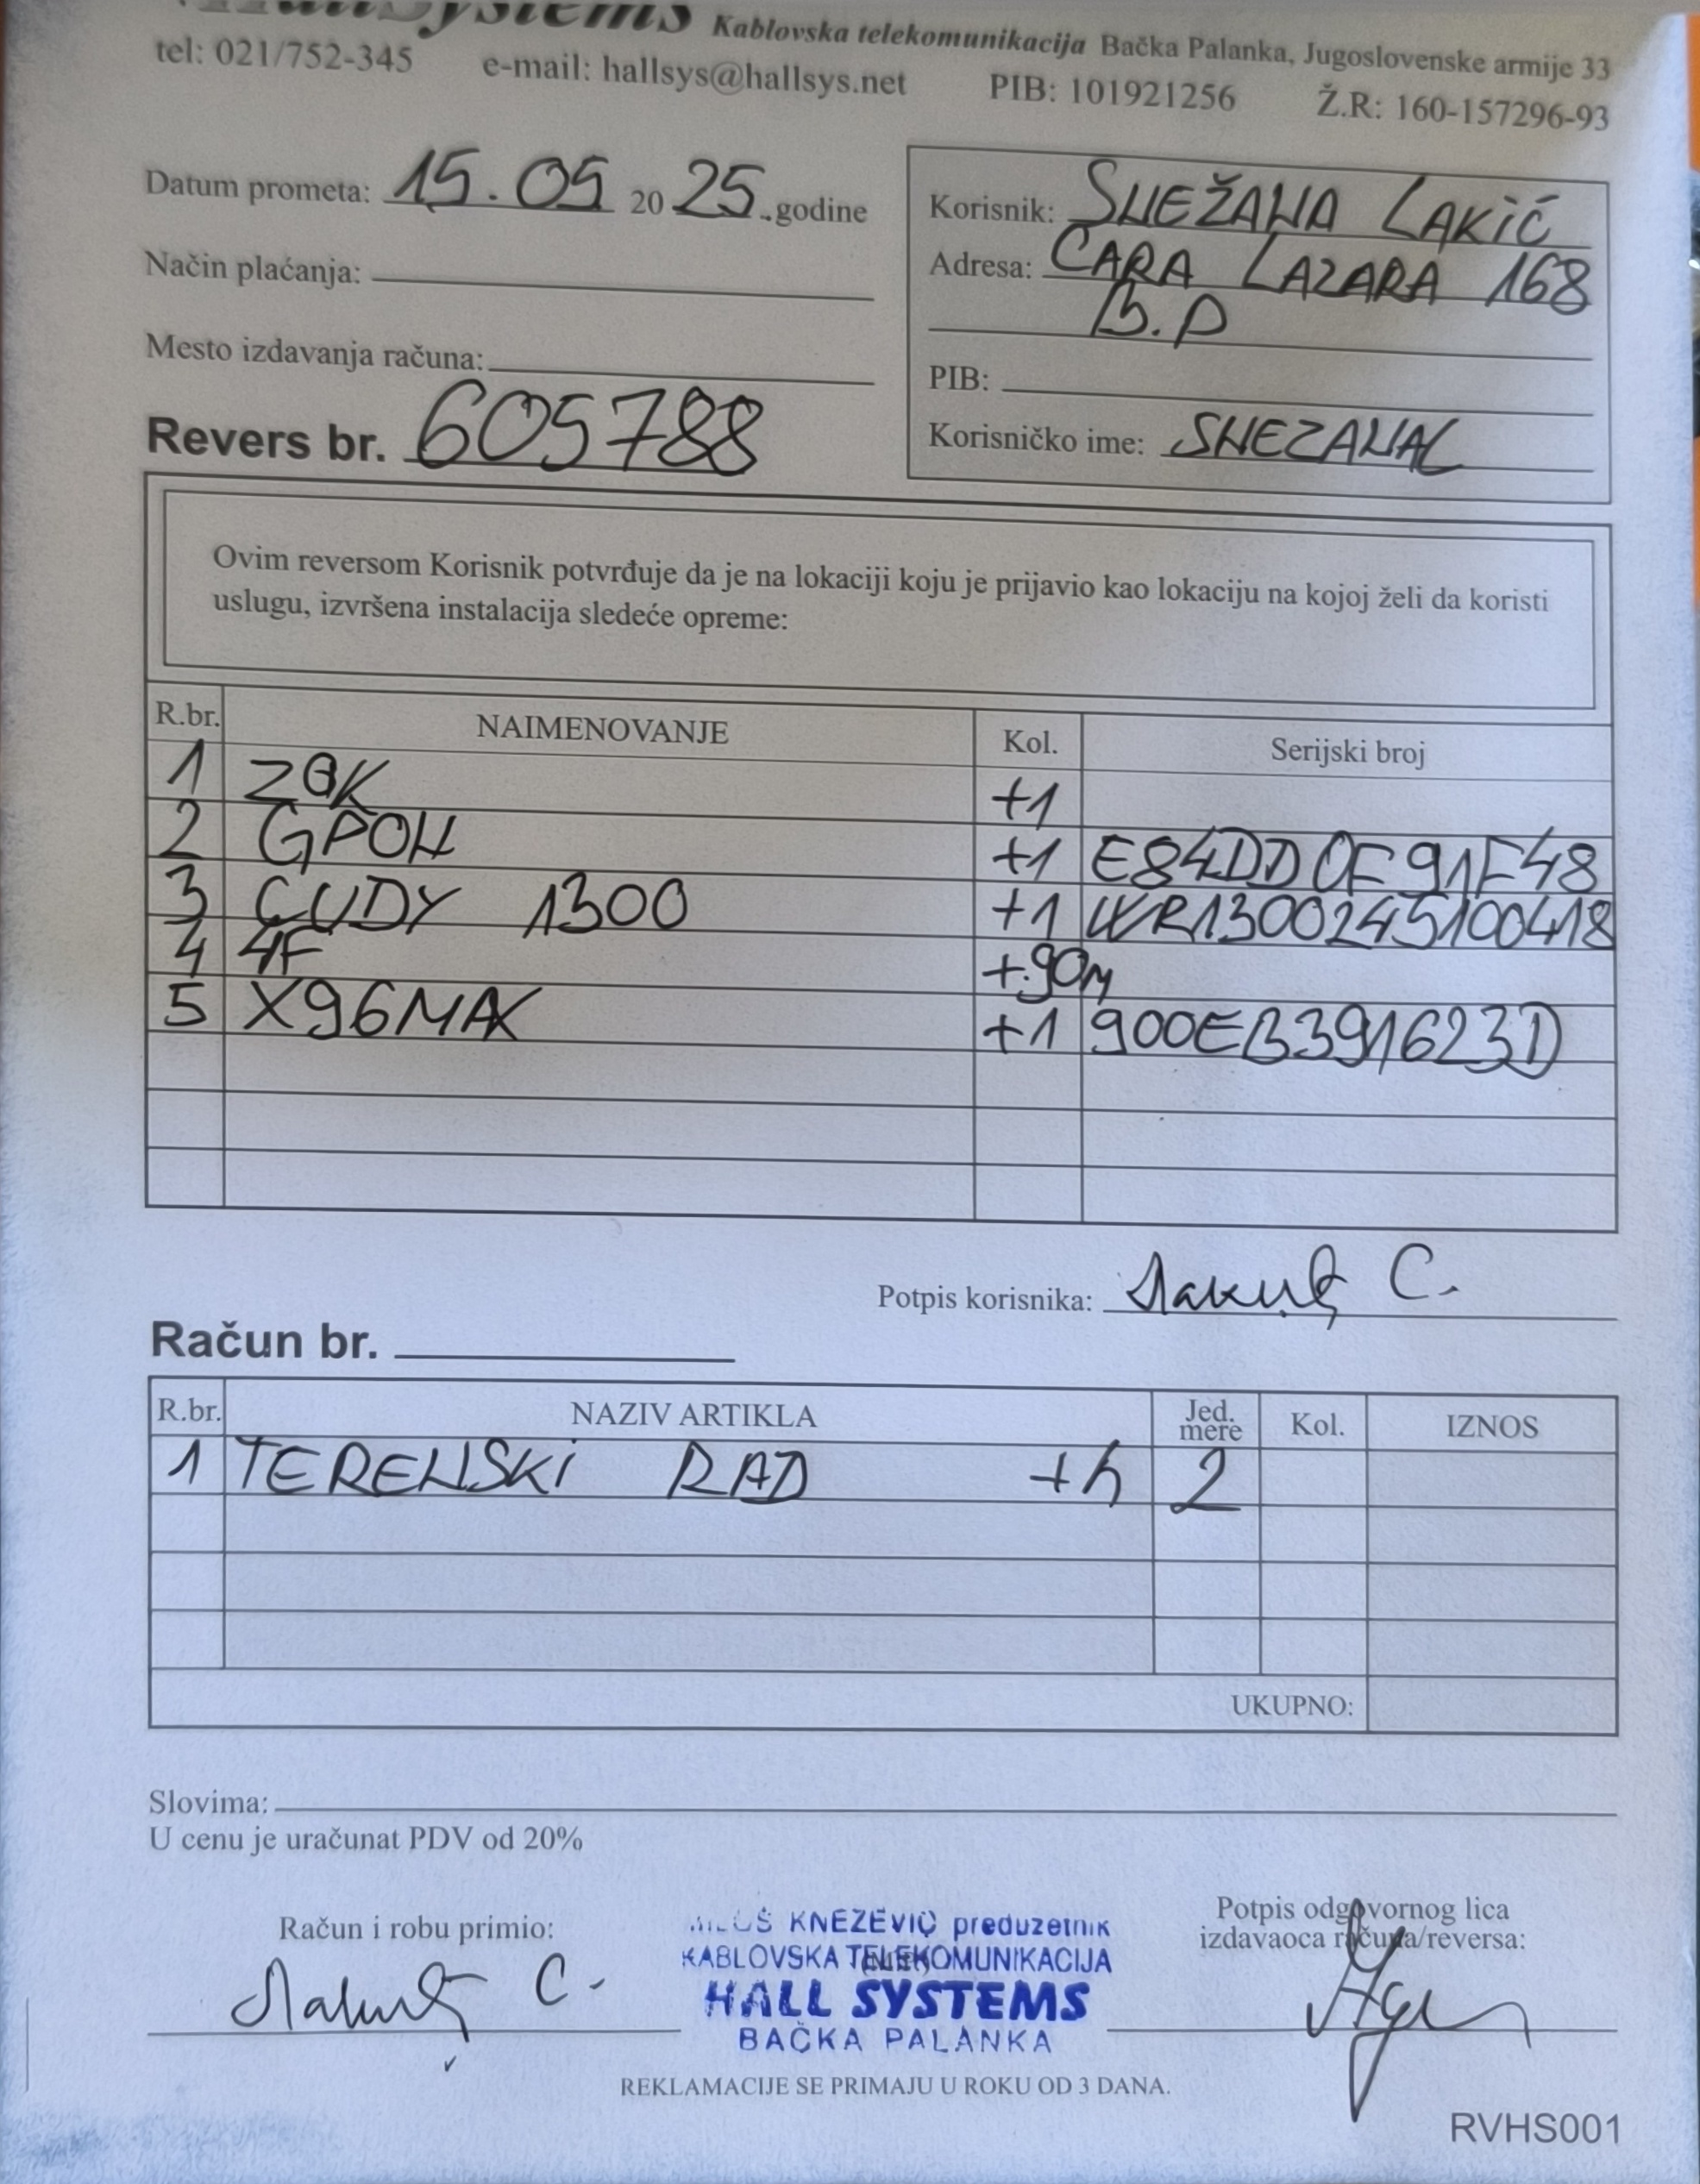 HallSystems Kablovska telekomunikacija Bačka Palanka, Jugoslovenske armije 33
tel: 021/752-345 e-mail: hallsys@hallsys.net PIB: 101921256 Ž.R: 160-157296-93
Datum prometa: 15.05 2025. godine
Način plaćanja:
Mesto izdavanja računa:
Revers br. 605788
Korisnik: SNEŽANA LAKIĆ
Adresa: CARA LAZARA 168
B.P
PIB:
Korisničko ime: SNEZANAL
Ovim reversom Korisnik potvrđuje da je na lokaciji koju je prijavio kao lokaciju na kojoj želi da koristi
uslugu, izvršena instalacija sledeće opreme:
R.br. NAIMENOVANJE Kol. Serijski broj
1 ZOK +1
2 GPON +1 E84DD0F91F48
3 CUDY 1300 +1 WR1300245100418
4 4F +90m
5 X96MAX +1 900EB391623D
Potpis korisnika: C.
Račun br.
R.br. NAZIV ARTIKLA Jed. mere Kol. IZNOS
1 TERENSKI RAD +h 2
UKUPNO:
Slovima:
U cenu je uračunat PDV od 20%
Račun i robu primio:
C.
MILOŠ KNEŽEVIĆ preduzetnik
KABLOVSKA TELEKOMUNIKACIJA
HALL SYSTEMS
BAČKA PALANKA
Potpis odgovornog lica
izdavaoca računa/reversa:
REKLAMACIJE SE PRIMAJU U ROKU OD 3 DANA.
RVHS001